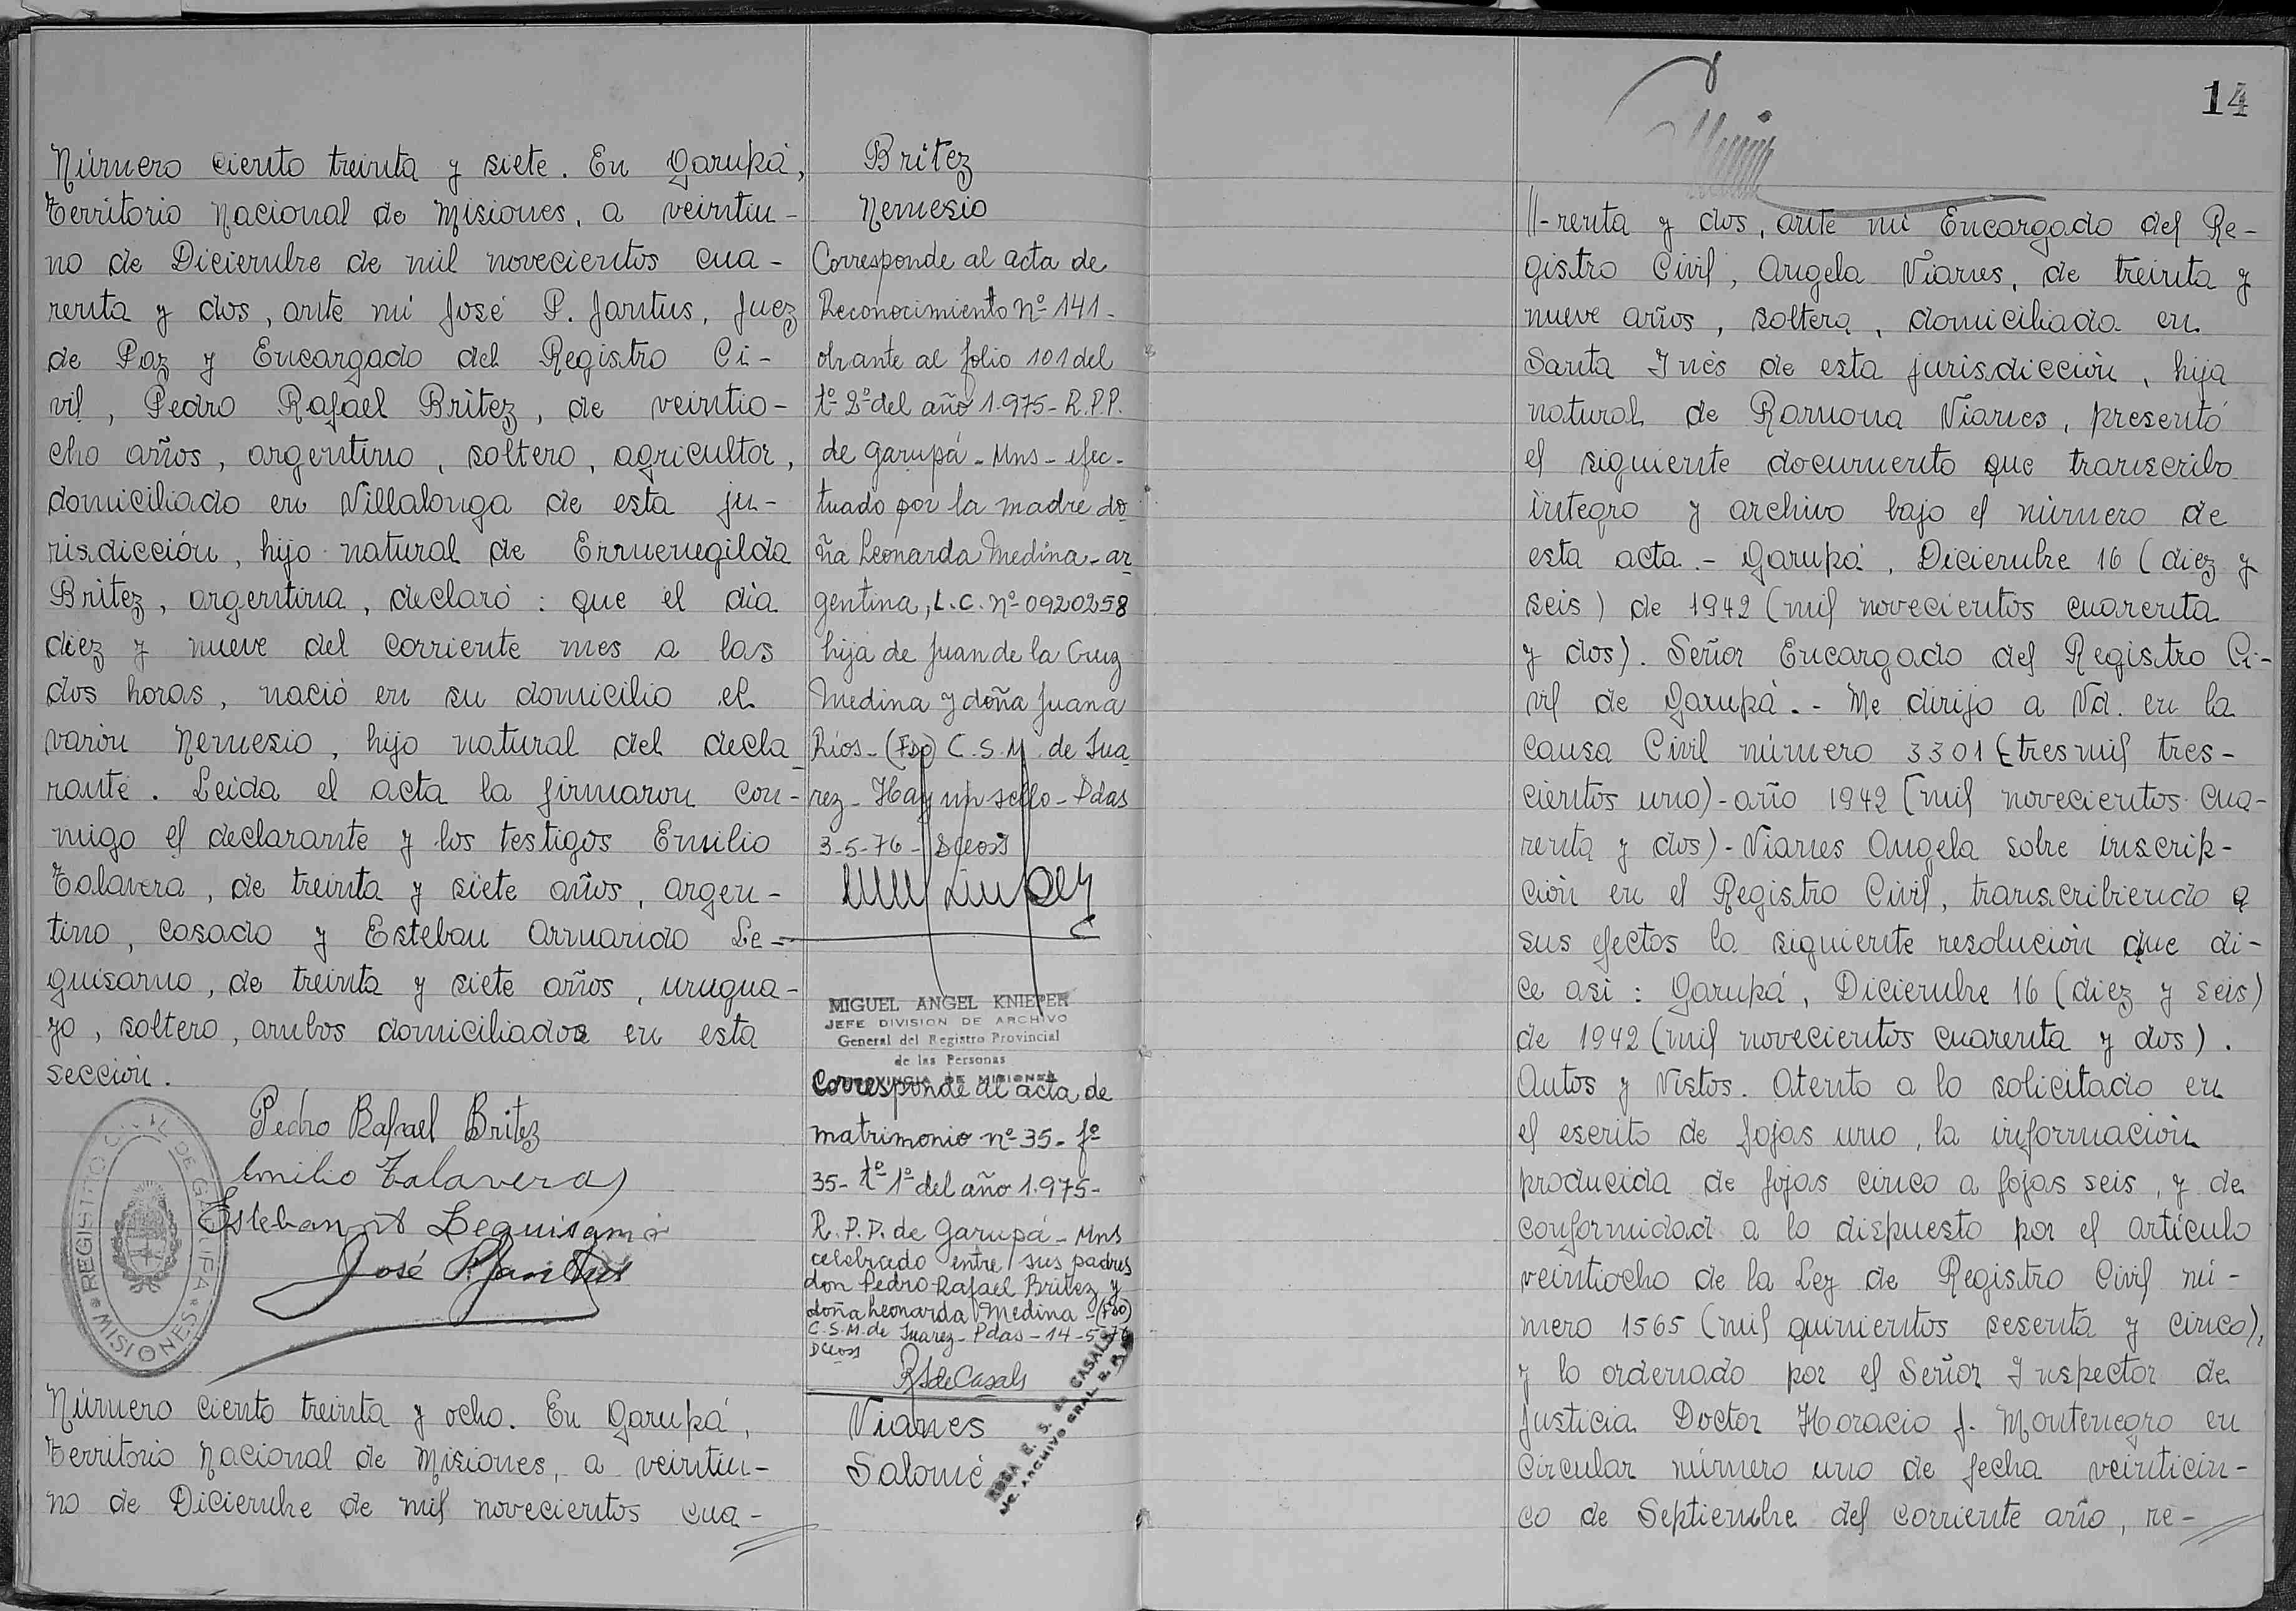 Número ciento treinta y siete. En Garupá,
Territorio Nacional de Misiones, a veintiu-
no de Diciembre de mil novecientos cua-
renta y dos, ante mi José P. Jantus, Juez
de Paz y Encargado del Registro Ci-
vil, Pedro Rafael Britez, de veintio-
cho años, argentino, soltero, agricultor,
domiciliado en Villalonga de esta ju-
risdicción, hijo natural de Ermenegilda
Britez, argentina, declaró: que el día
diez y nueve del corriente mes a las
dos horas, nació en su domicilio el
varón Nemesio, hijo natural del decla-
rante. Leida el acta la firmaron con-
migo el declarante y los testigos Emilio
Talavera, de treinta y siete años, argen-
tino, casado y Esteban Armando Le-
guisamo, de treinta y siete años, urugua-
yo, soltero, ambos domiciliados en esta
sección.
Pedro Rafael Britez
Emilio Talavera
Esteban A Leguisamo
José P. Jantus
REGISTRO CIVIL DE GARUPA
MISIONES
Número ciento treinta y ocho. En Garupá,
Territorio Nacional de Misiones, a veintiu-
no de Diciembre de mil novecientos cua-
Britez
Nemesio
Corresponde al acta de
Reconocimiento Nº 141-
obrante al folio 101 del
tº 2º del año 1.975- R.P.P.
de Garupá - Mns - efec-
tuado por la madre do
ña Leonarda Medina - ar
gentina, L.C. Nº 0920258
hija de Juan de la Cruz
Medina y doña Juana
Ríos - (Fdo) C.S.M. de Jua
rez - Hay un sello - Pdas
3-5-76 -
MIGUEL ANGEL KNIEPER
JEFE DIVISION DE ARCHIVO
General del Registro Provincial
de las Personas
PROVINCIA DE MISIONES
Corresponde al acta de
matrimonio nº 35 - fº
35 - tº 1º del año 1.975-
R.P.P. de Garupá - Mns
celebrado entre sus padres
don Pedro Rafael Britez y
doña Leonarda Medina - (Fdo)
C.S.M. de Juarez - Pdas - 14-5-76
R S de Casals
ROSA E. S. de CASALS
ARCHIVO GRAL R.P.P.
Vianes
Salomé
14
//-renta y dos, ante mi Encargado del Re-
gistro Civil, Angela Vianes, de treinta y
nueve años, soltera, domiciliada en
Santa Inés de esta jurisdicción, hija
natural de Ramona Vianes, presentó
el siguiente documento que transcribo
íntegro y archivo bajo el número de
esta acta.- Garupá, Diciembre 16 (diez y
seis) de 1942 (mil novecientos cuarenta
y dos). Señor Encargado del Registro Ci-
vil de Garupá.- Me dirijo a Vd. en la
causa Civil número 3301 (tres mil tres-
cientos uno)-año 1942 (mil novecientos cua-
renta y dos)- Vianes Angela sobre inscrip-
ción en el Registro Civil, transcribiendo a
sus efectos la siguiente resolución que di-
ce así: Garupá, Diciembre 16 (diez y seis)
de 1942 (mil novecientos cuarenta y dos).
Autos y Vistos. Atento a lo solicitado en
el escrito de fojas uno, la información
producida de fojas cinco a fojas seis, y de
conformidad a lo dispuesto por el artículo
veintiocho de la Ley de Registro Civil nú-
mero 1565 (mil quinientos sesenta y cinco),
y lo ordenado por el Señor Inspector de
Justicia Doctor Horacio J. Montenegro en
Circular número uno de fecha veinticin-
co de Septiembre del corriente año, re-